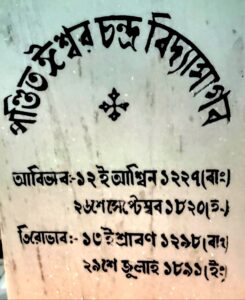 পণ্ডিত ঈশ্বর চন্দ্র বিদ্যাসাগর
আবির্ভাব:- ১২ই আশ্বিন ১২২৭(বাং)
২৬শে সেপ্টেম্বর ১৮২০(ইং)
তিরোভাব:- ১৩ই শ্রাবণ ১২৯৮(বাং)
২৯শে জুলাই ১৮৯১(ইং)